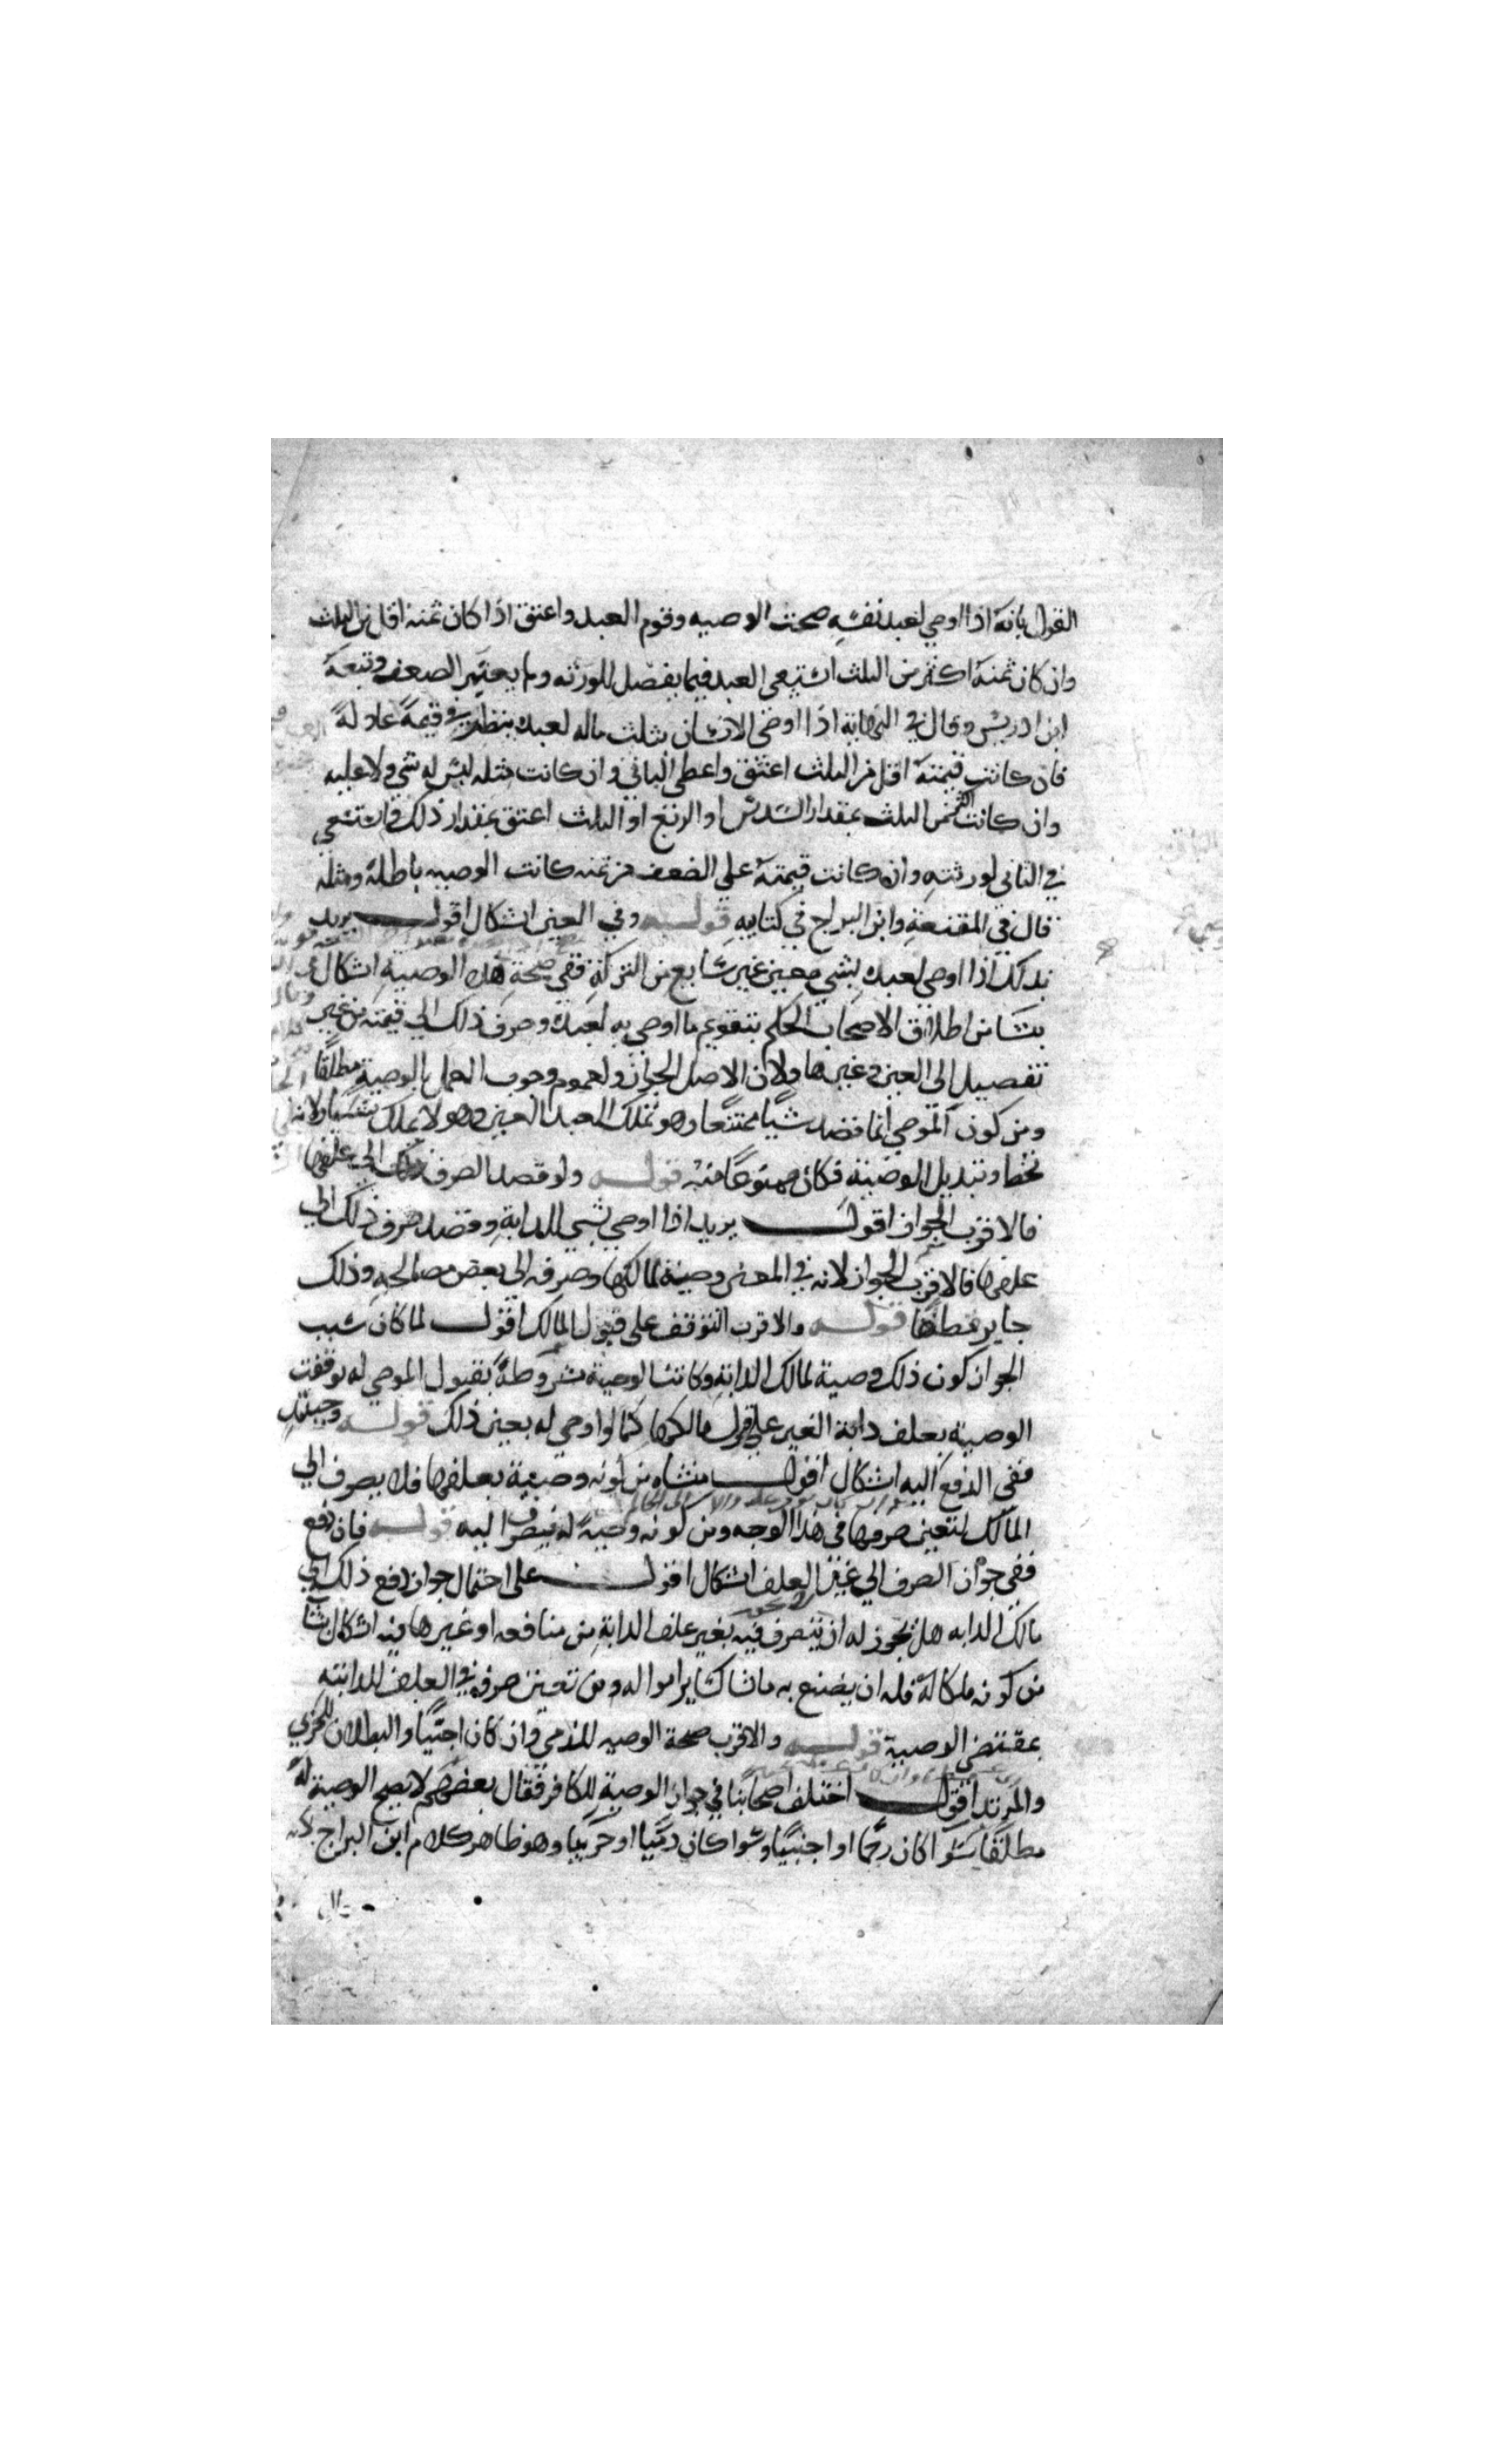 القول بانه اذا اوصي لعبد نفسه صحت الوصيه وقوم العبد واعتق اذا كان ثمنه اقل من الثلث
وان كان ثمنه اكثر من الثلث استسعي العبد فيما يفضل للورثه ولم يعتبر الضعف وتبعه
ابن ادريس وقال في النهاية اذا اوصي الانسان بثلث ماله لعبده ينظر في قيمة عادلة
فان كانت قيمته اقل من الثلث اعتق واعطي الباقي وان كانت مثله ليس له شي ولا عليه
وان كانت اكثر من الثلث بمقدار السدس او الربع او الثلث اعتق بمقدار ذلك واستسعي
في الباقي لورثته وان كانت قيمته علي الضعف من ثمنه كانت الوصيه باطلة ومثله
قال في المقنعة وابن البراج في كتابيه قوله وفي العين اشكال اقول يريد
بذلك اذا اوصي لعبده بشي معين غير شايع من التركة ففي صحة هذه الوصية اشكال
ينشا من اطلاق الاصحاب الحكم بتقويم ما اوصي به لعبده وصرف ذلك الي قيمته من غير
تفصيل الي العين وغيرها ولان الاصل الجواز ولعموم وجوب العمل بالوصية مطلقا
ومن كون الموصي انما قصد شيا ممتنعا وهو تملك العبد العين وهو لا يملك شيا ولانه
تخط وتبديل الوصية فكان ممنوعا منه قوله ولو قصد الصرف الي علفها
فالاقرب الجواز اقول يريد اذا اوصي بشي للدابة وقصد صرف ذلك الي
علفها فالاقرب الجواز لانه في المعني وصية لمالكها وصرفه الي بعض مصالحه وذلك
جايز مطلقا قوله والاقرب التوقف علي قبول المالك اقول لما كان سبب
الجواز كون ذلك وصية لمالك الدابة وكانت الوصية مشروطة بقبول الموصي له توقفت
الوصية بعلف دابة الغير علي قبول مالكها كما لو اوصي له بعين ذلك قوله وحينئذ
ففي الدفع اليه اشكال اقول منشاه من كونه وصية بعلفها فلا يصرف الي
المالك لتعين صرفها في هذا الوجه ومن كونه وصية له فيصرف اليه قوله فان دفع
ففي جواز الصرف الي غير العلف اشكال اقول علي احتمال جواز دفع ذلك الي
مالك الدابه هل يجوز له ان يتصرف فيه بغير علف الدابة من منافعه او غيرها فيه اشكال ينشا
من كونه ملكا له فله ان يصنع به ما شا كساير امواله ومن تعين صرفه في العلف للدابة
بمقتضي الوصية قوله والاقرب صحة الوصيه للذمي وان كان اجنبيا والبطلان للحربي
والمرتد اقول اختلف اصحابنا في جواز الوصية للكافر فقال بعضهم لا يصح الوصية له
مطلقا سوا كان رحما او اجنبيا وسوا كان ذميا او حربيا وهو ظاهر كلام ابن البراج لانه